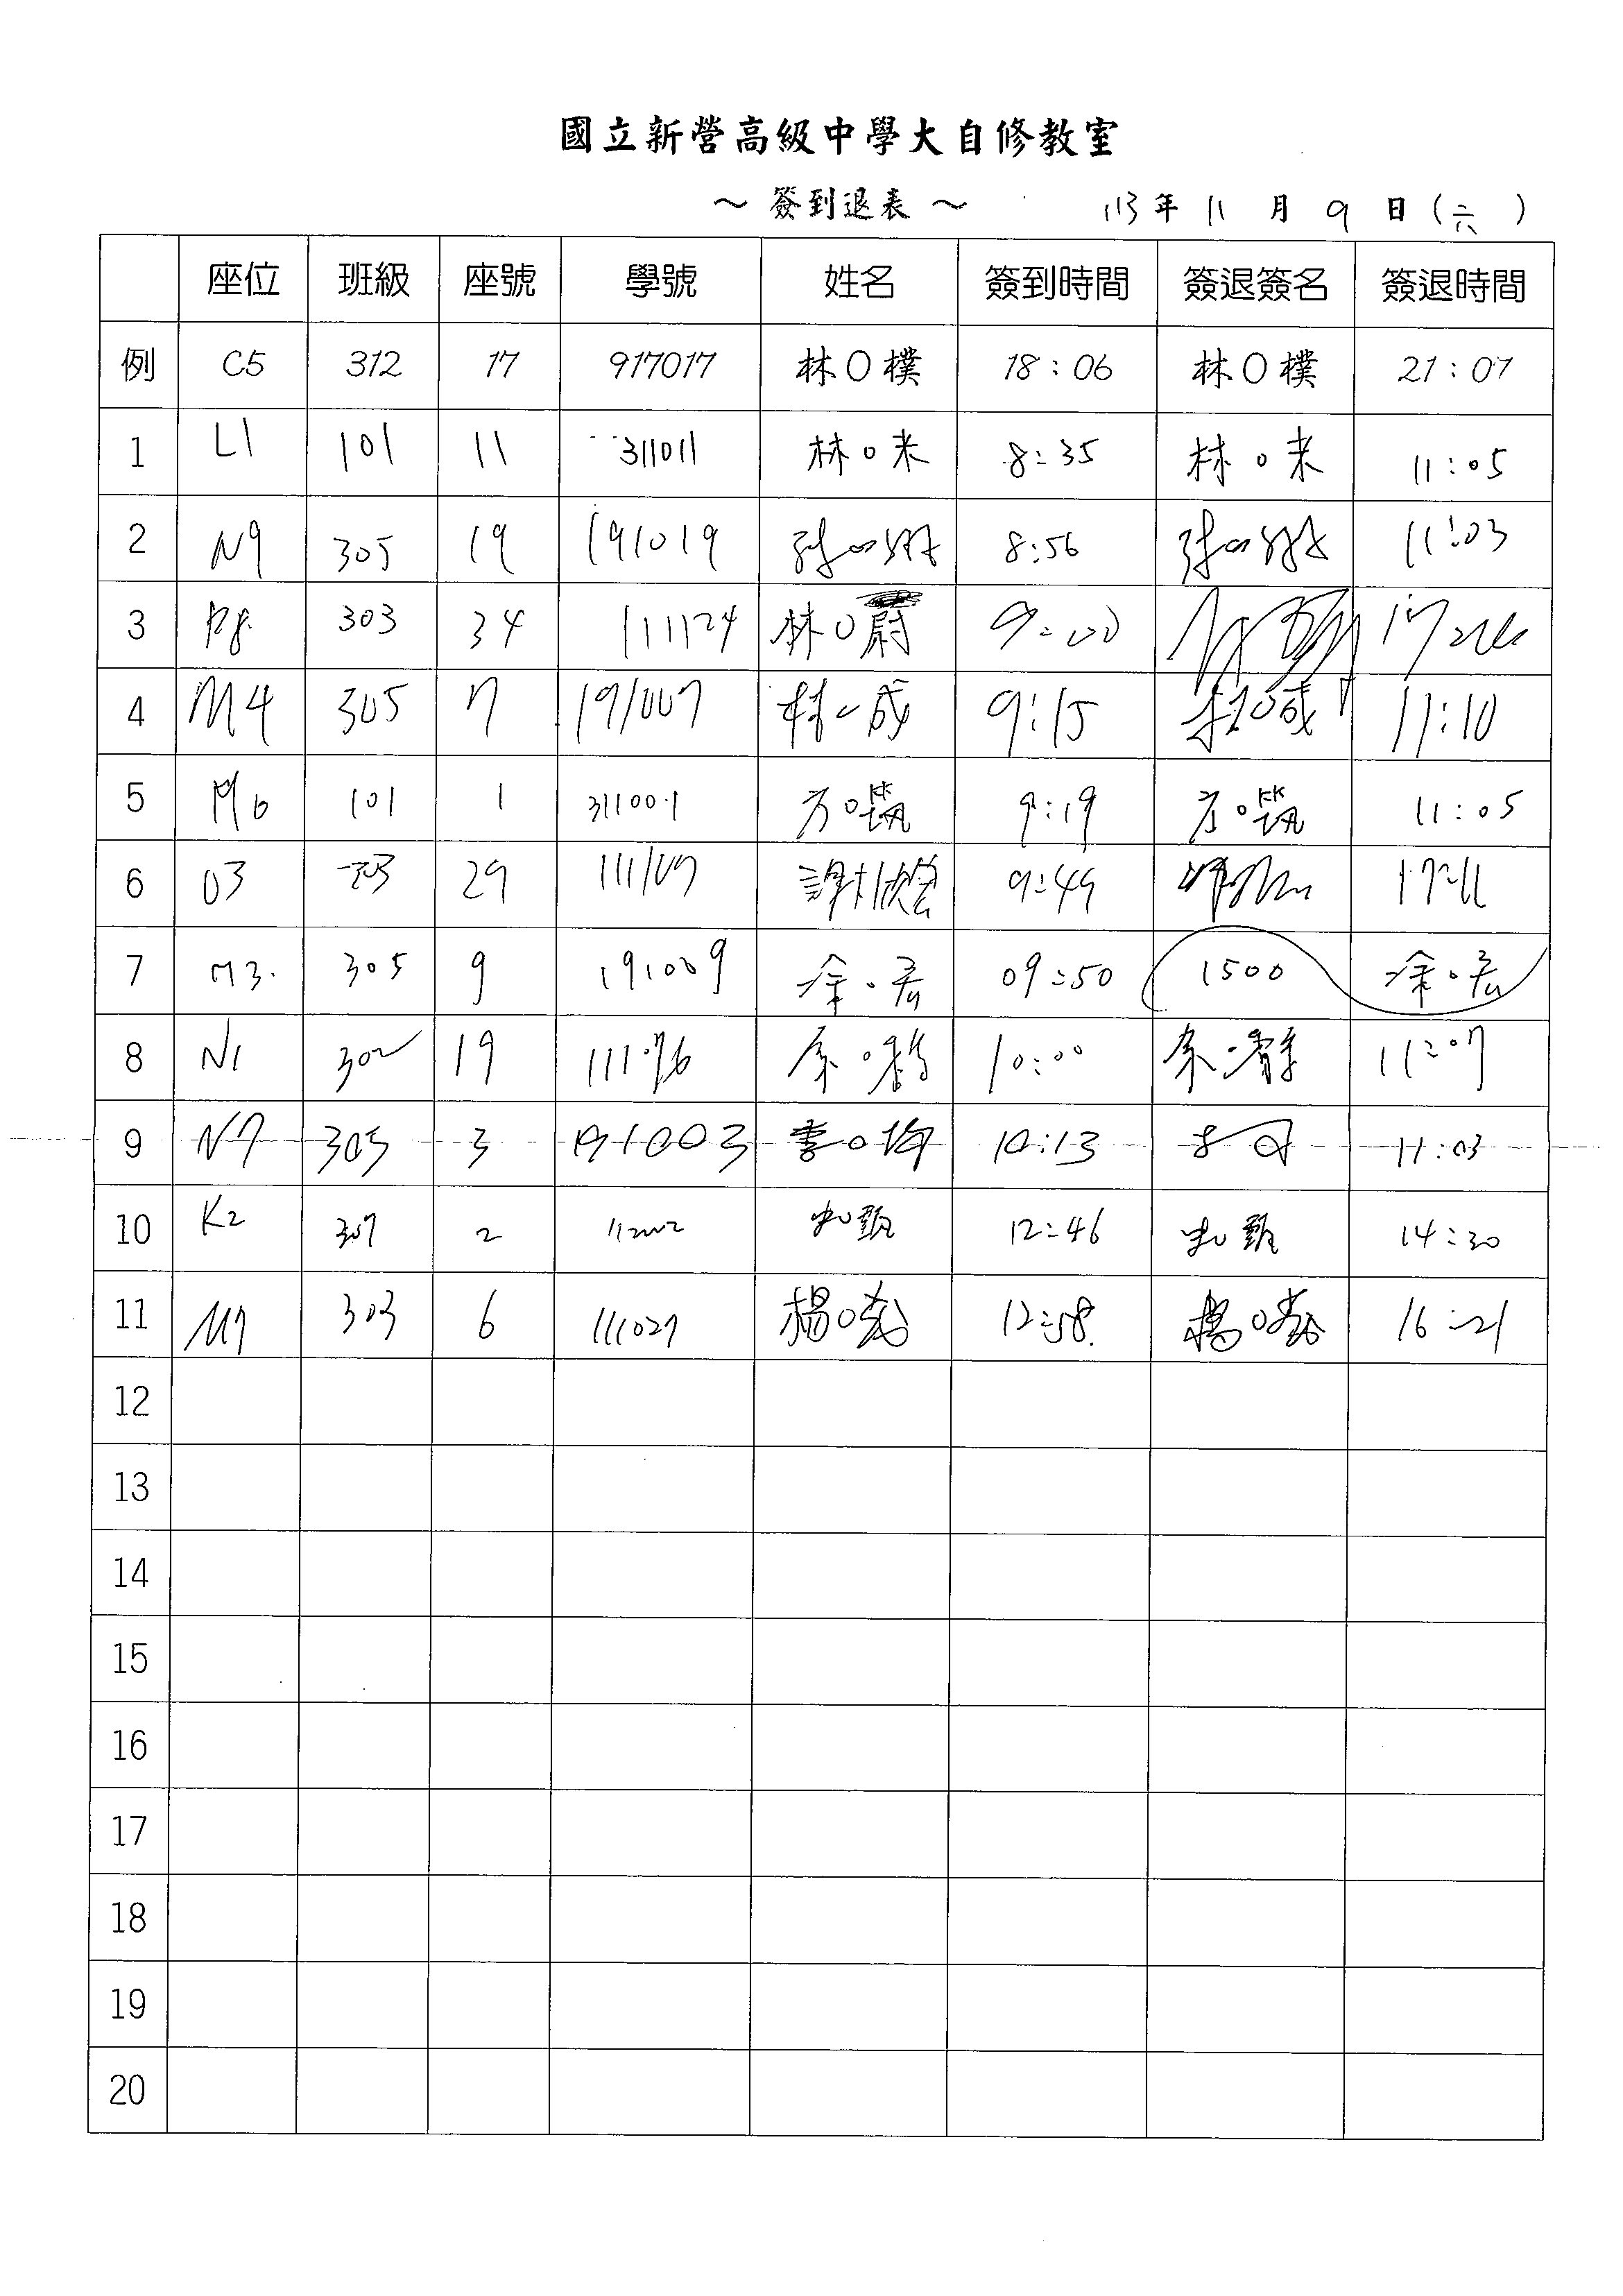 國立新營高級中學大自修教室
～ 簽到退表 ～ 113 年 11 月 9 日 (六)
座位 班級 座號 學號 姓名 簽到時間 簽退簽名 簽退時間
例 C5 312 17 917017 林O樸 18:06 林O樸 21:07
1 L1 101 11 311011 林O米 8:35 林O米 11:05
2 N9 305 19 191019 8:56 11:03
3 303 34 111124 林O蔚 9:00
4 M4 305 7 191007 林O成 9:15 林O成 11:10
5 M6 101 1 311001 方O 9:19 方O 11:05
6 O3 29 謝 9:49
7 M3 305 9 191009 涂O宏 09:50 1500 涂O宏
8 N1 302 19 10:00 11:07
9 N7 305 3 191003 李O 10:13 11:03
10 K2 307 2 12:46 14:30
11 M7 303 6 111027 楊O 12:58 楊O 16:21
12
13
14
15
16
17
18
19
20